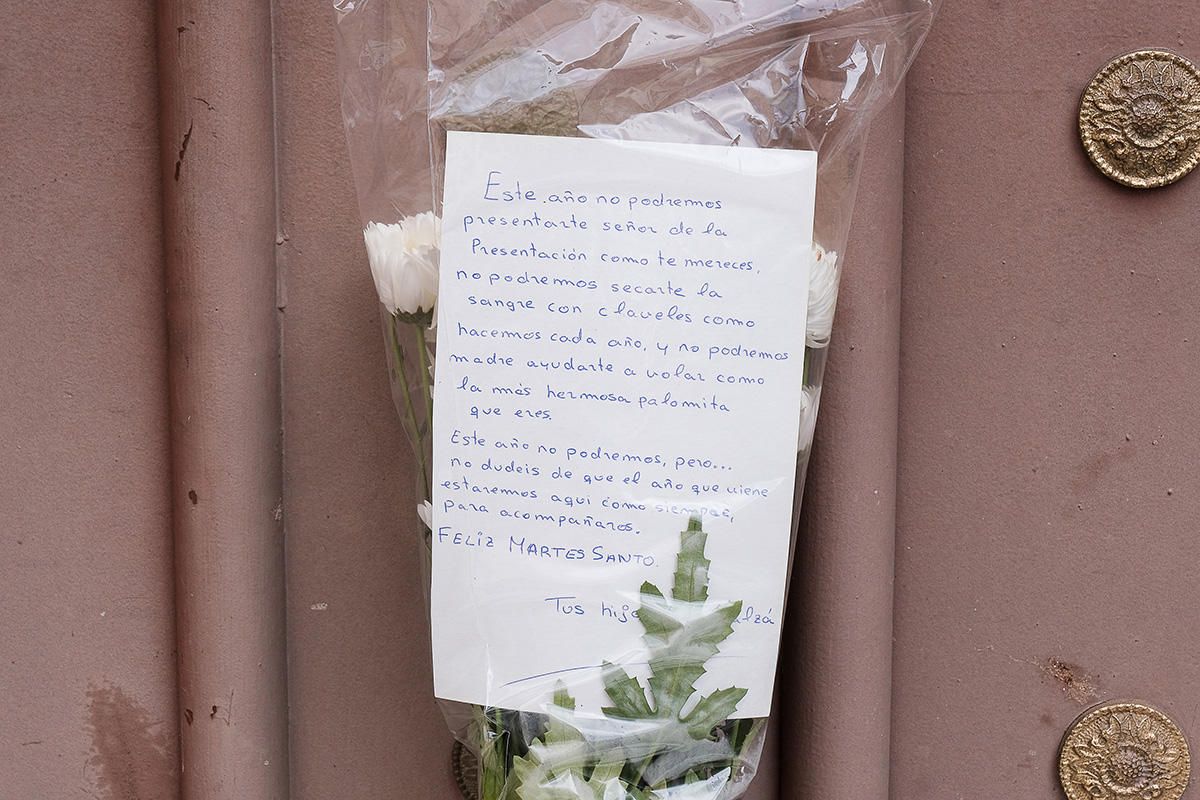 Este año no podremos
presentarte señor de la
Presentación como te mereces,
no podremos secarte la
sangre con claveles como
hacemos cada año, y no podremos
madre ayudarte a volar como
la más hermosa palomita
que eres.
Este año no podremos, pero...
no dudeis de que el año que viene
estaremos aqui como siempre,
para acompañaros.
FELÍZ MARTES SANTO.
Tus